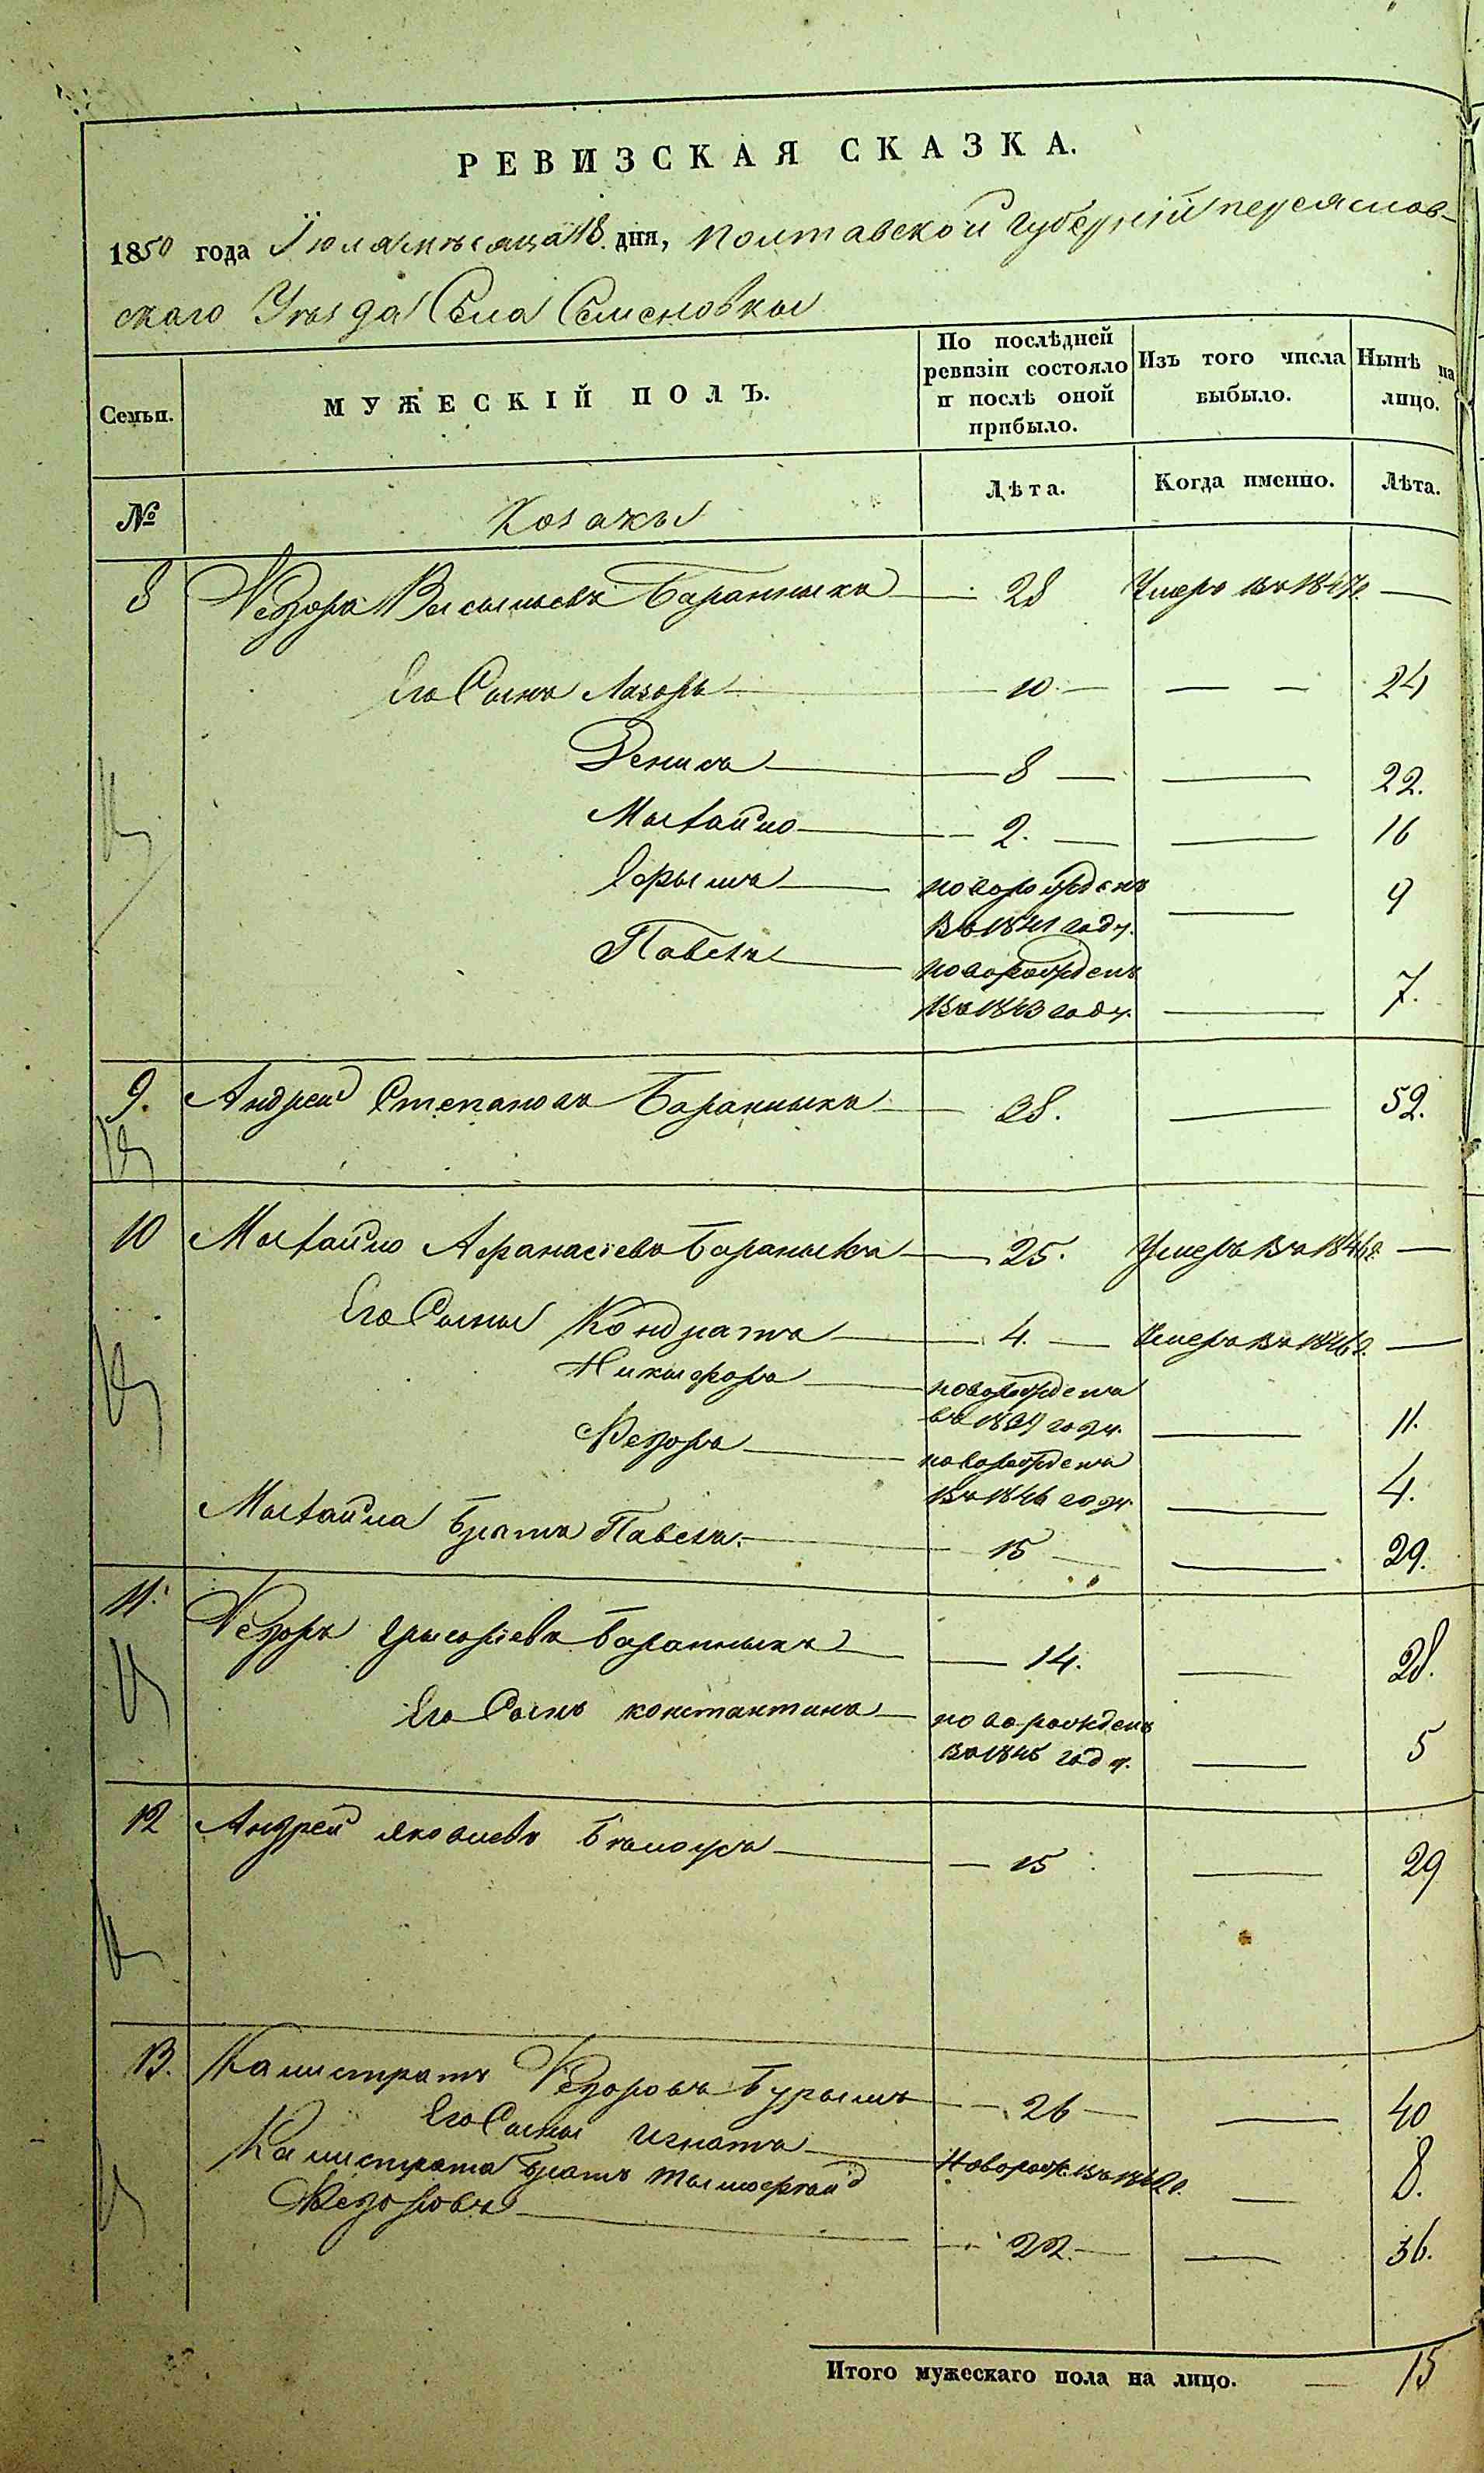 РЕВИЗСКАЯ СКАЗКА.
1850 года Їюля мѣсяца 18. дня, Полтавской Губерній переяслов-
скаго Уѣзда Села Семеновки
Семьи.
МУЖЕСКІЙ ПОЛЪ.
По послѣдней ревизіи состояло и послѣ оной прибыло.
Изъ того числа выбыло.
Нынѣ на лицо.
№
Козакы
Лѣта.
Когда именно.
Лѣта.
8 Федоръ Васыльевъ Баранныкъ — 28 Умеръ въ 1847г. —
Его Сынъ Лазоръ — 10. — — — 24
Данила — 8 — — 22.
Мыхайло — 2. — — 16
Ефымъ — новорожденъ въ 1841 году. — 9
Павелъ — новорожденъ въ 1843 году. — 7.
9. Андрей Степановъ Баранныкъ — 38. — 52.
10 Мыхайло Афанасіевъ Баранныкъ — 25. Умеръ въ 1846г. —
Его Сыны Кондратъ — 4. — Умеръ въ 1846г. —
Никыфоръ — новорожденъ въ 1839 году. — 11.
Федоръ — новорожденъ въ 1846 году. — 4.
Мыхайла братъ Павелъ. — 15 — — 29.
11. Федоръ Грыгоріевъ Баранныкъ — 14. — 28.
Его Сынъ константинъ — новорожденъ въ 1845 году. — 5
12 Андрей Яковлевъ Бѣлоусъ — 15 — 29
13. Калистратъ Федоровъ Бурымъ — 26 — — 40
Его Сыны Игнатъ — Новорож. въ 1842г. — 8.
Калистрата братъ Тымофѣй
Федоровъ — 22. — — 36.
Итого мужескаго пола на лицо. — 15